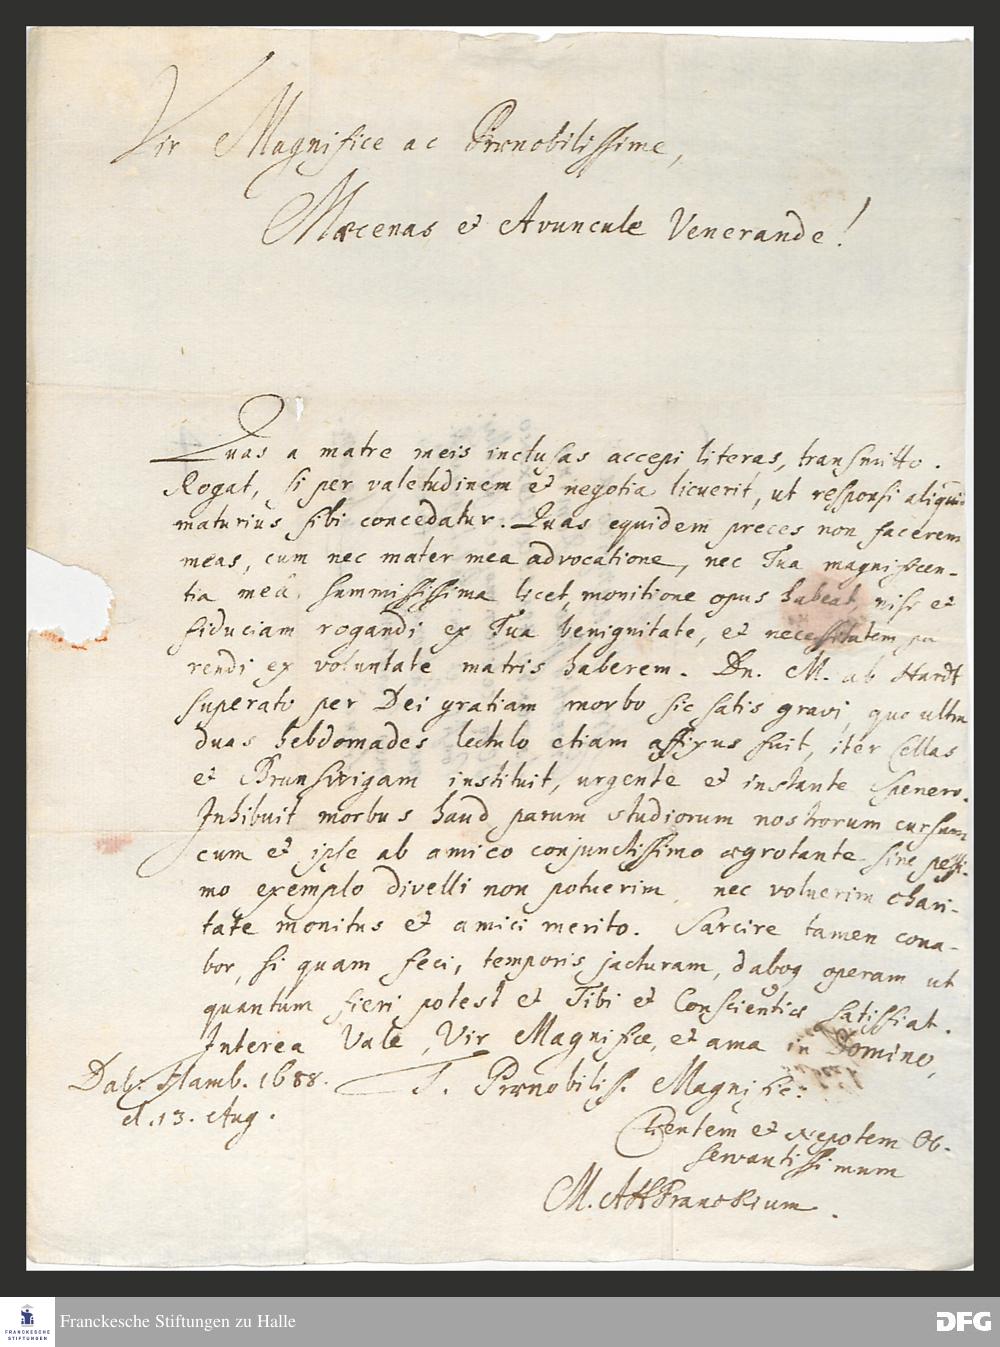 Vir Magnifice ac Prænobilissime,
Mæcenas et Avuncule Venerande!
Quas a matre meis inclusas accepi literas, transmitto.
Rogat, si per valetudinem et negotia licuerit, ut responsi aliquid
maturius sibi concedatur. Quas equidem preces non facerem
meas, cum nec mater mea advocatione, nec Tua magnificen-
tia meâ summississima licet, monitione opus habeat, nisi et
fiduciam rogandi ex Tua benignitate, et necessitatem pa
rendi ex voluntate matris haberem. Dn. M. ab Hardt
superato per Dei gratiam morbo sic satis gravi, quo ultra
duas hebdomades lectulo etiam affixus fuit, iter Cellas
et Brunswigam instituit, urgente et instante Spenero.
Inhibuit morbus haud parum studiorum nostrorum cursum
cum et ipse ab amico conjunctissimo ægrotante sine pessi-
mo exemplo divelli non potuerim, nec voluerim chari-
tate monitus et amici merito. Sarcire tamen cona-
bor, si quam feci, temporis jacturam, daboq operam ut
quantum fieri potest et Tibi et Conscientiæ satisfiat.
Interea Vale, Vir Magnifice, et ama in Domino,
Dab. Hamb. 1688.
d. 13. Aug.
T. Prænobiliss. Magnific:
Clientem et Nepotem Ob-
servantissimum
M. AHFranckium.
Franckesche Stiftungen zu Halle
FRANCKESCHE
STIFTUNGEN
DFG